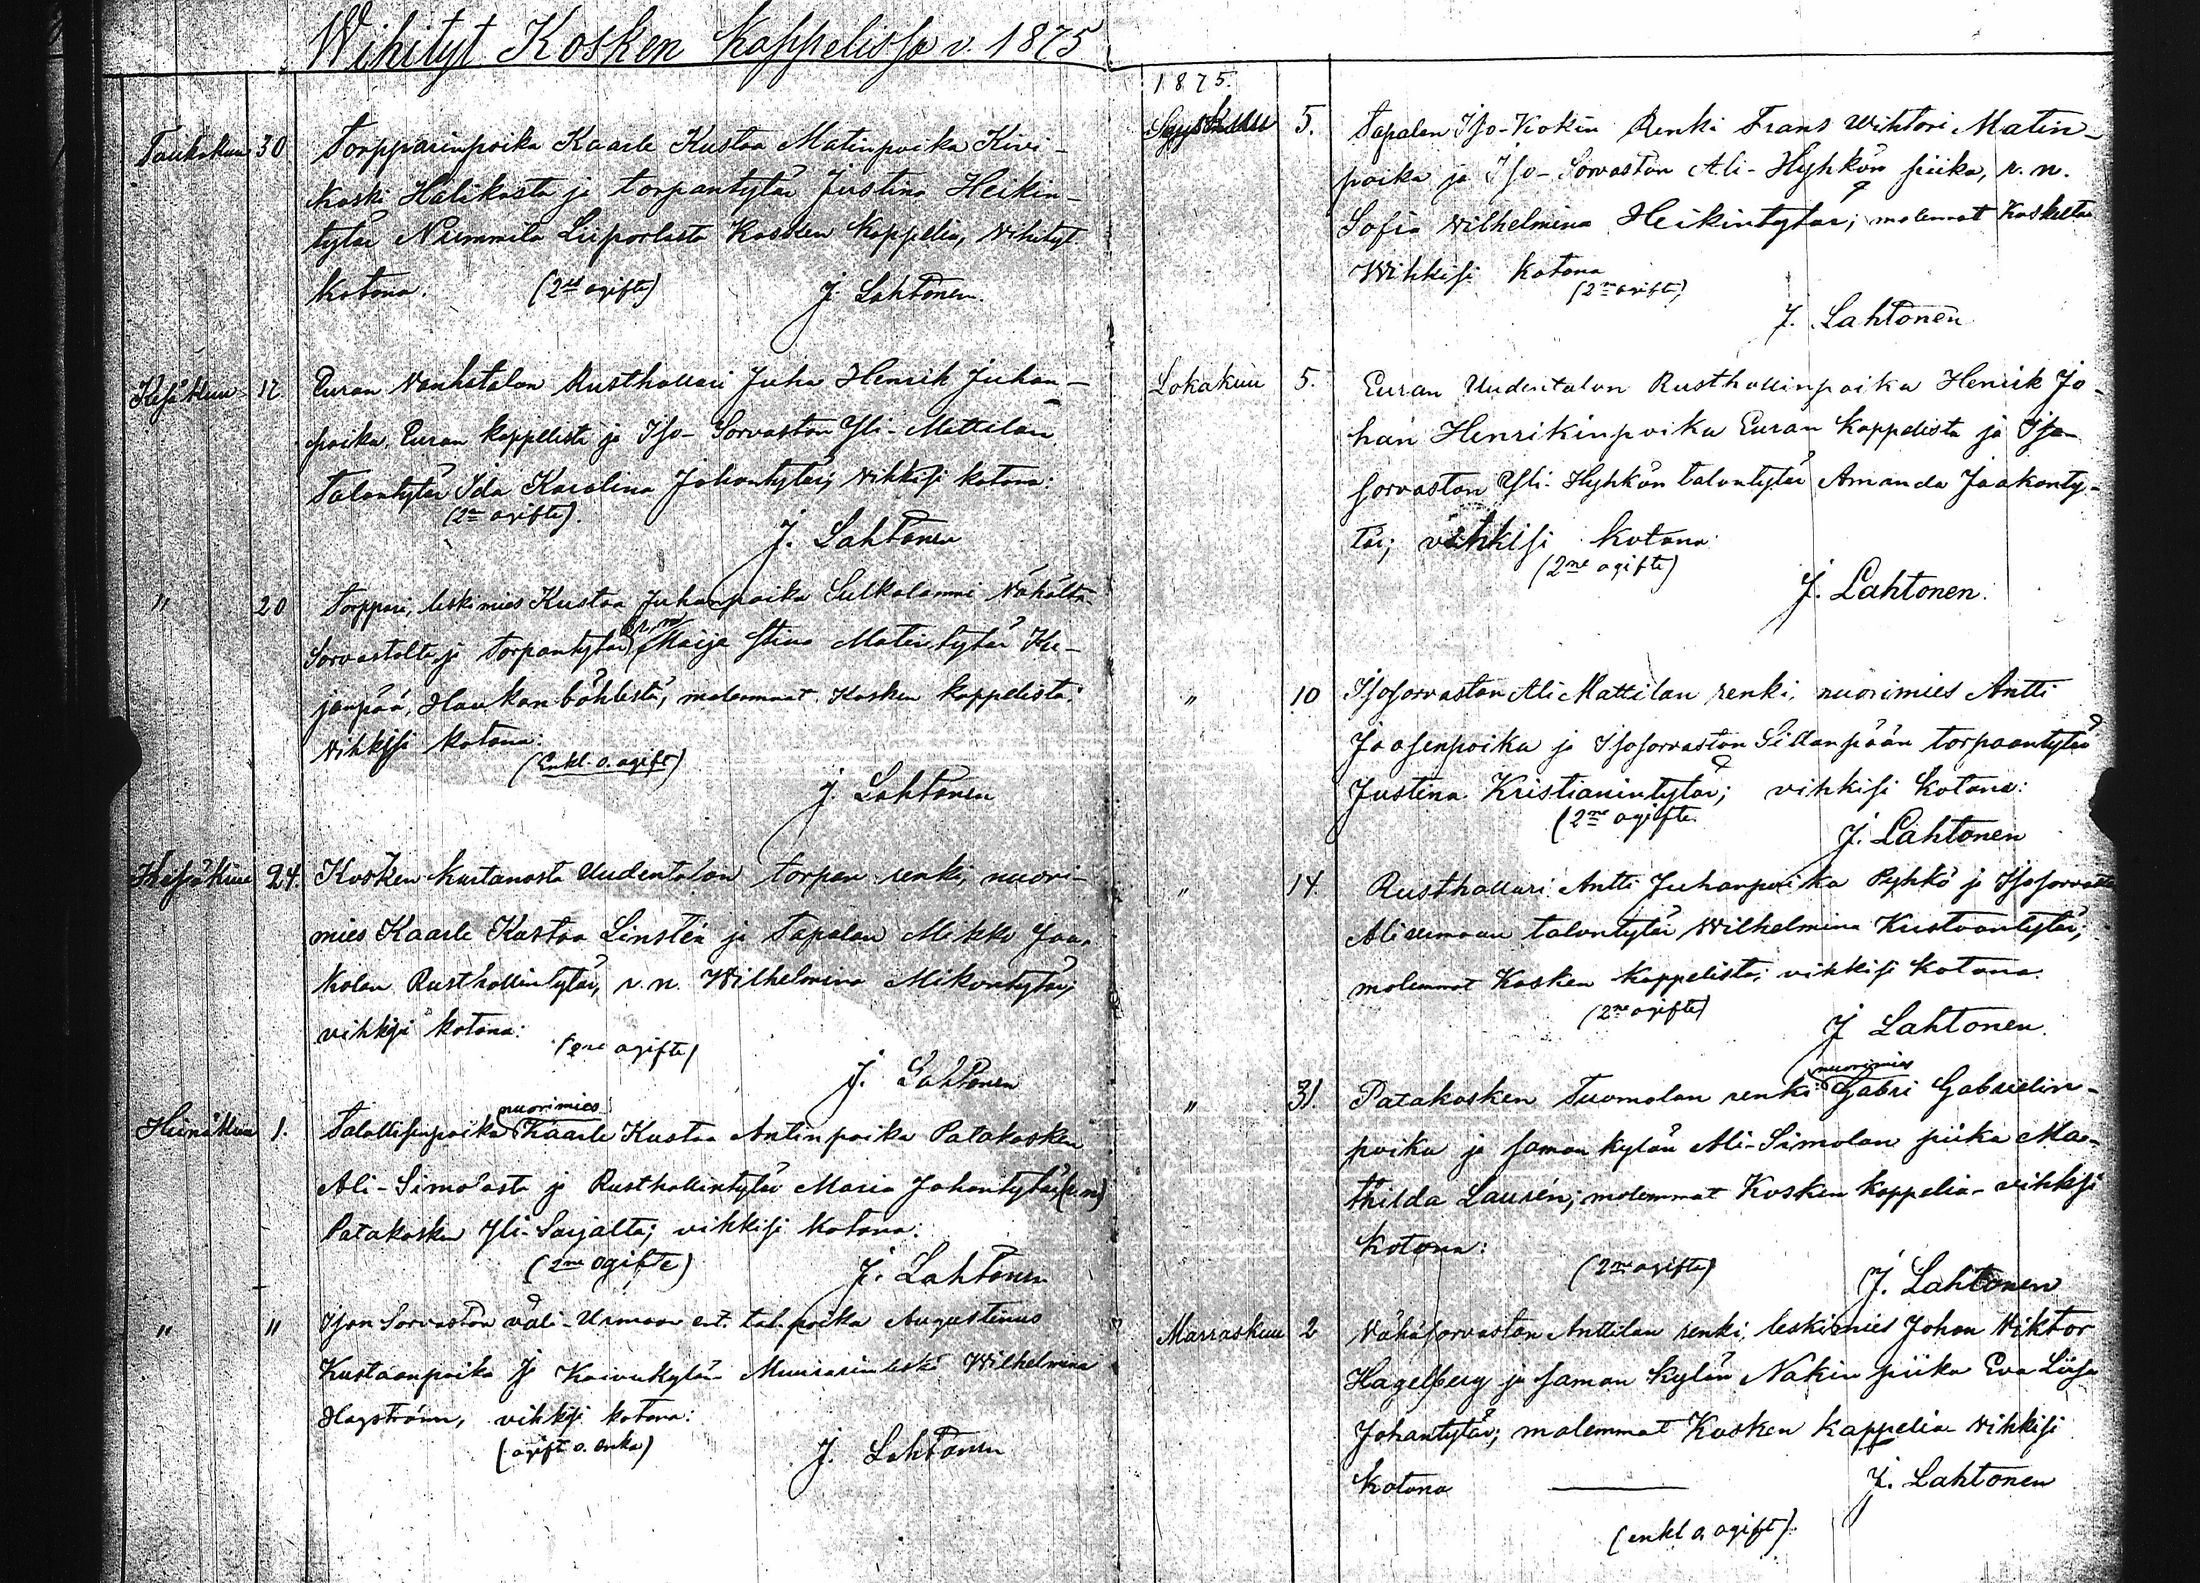 Wihityt Kosken kappelissa v. 1875
Toukokuu 30 Torpparinpoika Kaarle Kustaa Matinpoika Kivi-
koski Halikosta ja torpantytär Justina Heikin-
tytär Nummita Liiporlasta Kosken kappelia, vihityt
kotona. (2ne ogifte) J. Lahtonen.
Kesäkuu 12. Euran Vanhatalon Rusthollari Juha Henrik Juhan-
poika, Euran kappelista ja Iso-Sorvaston Yli-Mattilan
talontytär Ida Karolina Johantytär, vihkisi kotona:
(2ne ogifte).
J. Lahtonen
" 20 Torppari, leskimies Kustaa Juhanpoika Sulkalammi Vähältä-
Sorvastolta ja torpantytär, r. n. Maija Stina Matintytär Ku-
janpää, Haukan böhlestä, molemmat Kosken kappelista:
vihkisi kotona:
(Enkl. o. ogift)
J. Lahtonen
Kesäkuu 24. Kosken kartanosta Uudentalon torpan renki, nuori-
mies Kaarle Kustaa Linstén ja Tapalan Mikko Jaa-
kolan Rusthollintytär, r. n. Wilhelmina Mikontytär,
vihkisi kotona:
(2ne ogifte)
J. Lahtonen
Heinäkuu 1. Talollisenpoika nuorimies Kaarle Kustaa Antinpoika Patakosken
Ali-Simolasta ja Rusthollintytär Maria Johantytär (r. n)
Patakosken Yli-Sarjalta; vihkisi kotona:
(2ne ogifte) J. Lahtonen
" " Ison Sorvaston väli-Urmaan ent. tal. poika Augustinus
Kustaanpoika ja Koivukylän Muurarin leski Wilhelmina
Hagström, vihkisi kotona:
(ogift o. enka) J. Lahtonen
1875.
Syyskuu 5. Tapalan Iso-Kokin Renki Frans Wihtori Matin-
poika ja Iso-Sorvaston Ali-Hyhkön piika, r. n.
Sofia Wilhelmina Heikintytär; molemmat Koskelta
Wihkisi kotona
(2ne ogifte)
J. Lahtonen
Lokakuu 5. Euran Uudentalon Rusthollinpoika Henrik Jo-
han Henrikinpoika Euran kappelista ja Iso-
sorvaston Yli-Hyhkön talontytär Amanda Jaakonty-
tär; vihkisi kotona
(2ne ogifte)
J. Lahtonen.
" 10 Isosorvaston Ali Mattilan renki, nuorimies Antti
Joosenpoika ja Isosorvaston Sillanpään torpantytär
Justina Kristianintytär; vihkisi kotona:
(2ne ogifte
J. Lahtonen
" 14. Rusthollari Antti Juhanpoika Pyhkö ja Isosorvaston
Aliurmaan talontytär, Wilhelmina Kustaantytär,
molemmat Kosken kappelista; vihkisi kotona.
(2ne ogifte)
J Lahtonen.
" 31. Patakosken Tuomolan renki nuorimies Gabri Gabrielin-
poika ja saman kylän Ali-Simolan piika Ma-
thilda Laurén; molemmat Kosken kappelia - vihkisi
kotona:
(2ne ogifte)
J. Lahtonen
Marraskuu 2 Vähäsorvaston Anttilan renki, leskimies Johan Wiktor
Hagelberg ja saman kylän Nakin piika Eva Liisa
Johantytär; molemmat Kosken kappelia vihkisi
kotona J. Lahtonen
(enkl o. ogift).